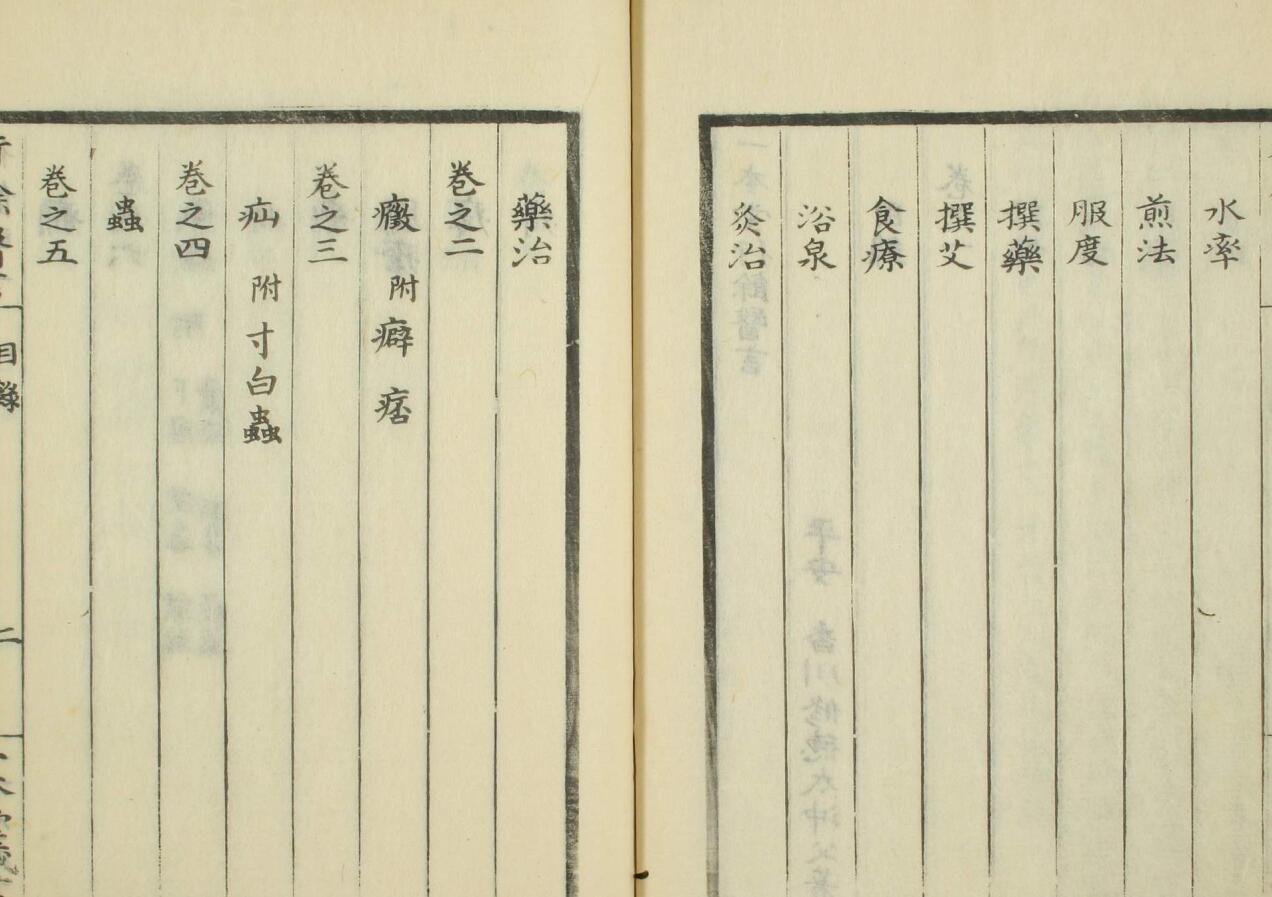 水率
煎法
服度
撰藥
撰艾
食療
浴泉
灸治
藥治
卷之二
癥 附 癖 痞
卷之三
疝 附 寸白蟲
卷之四
蟲
卷之五
目錄
二